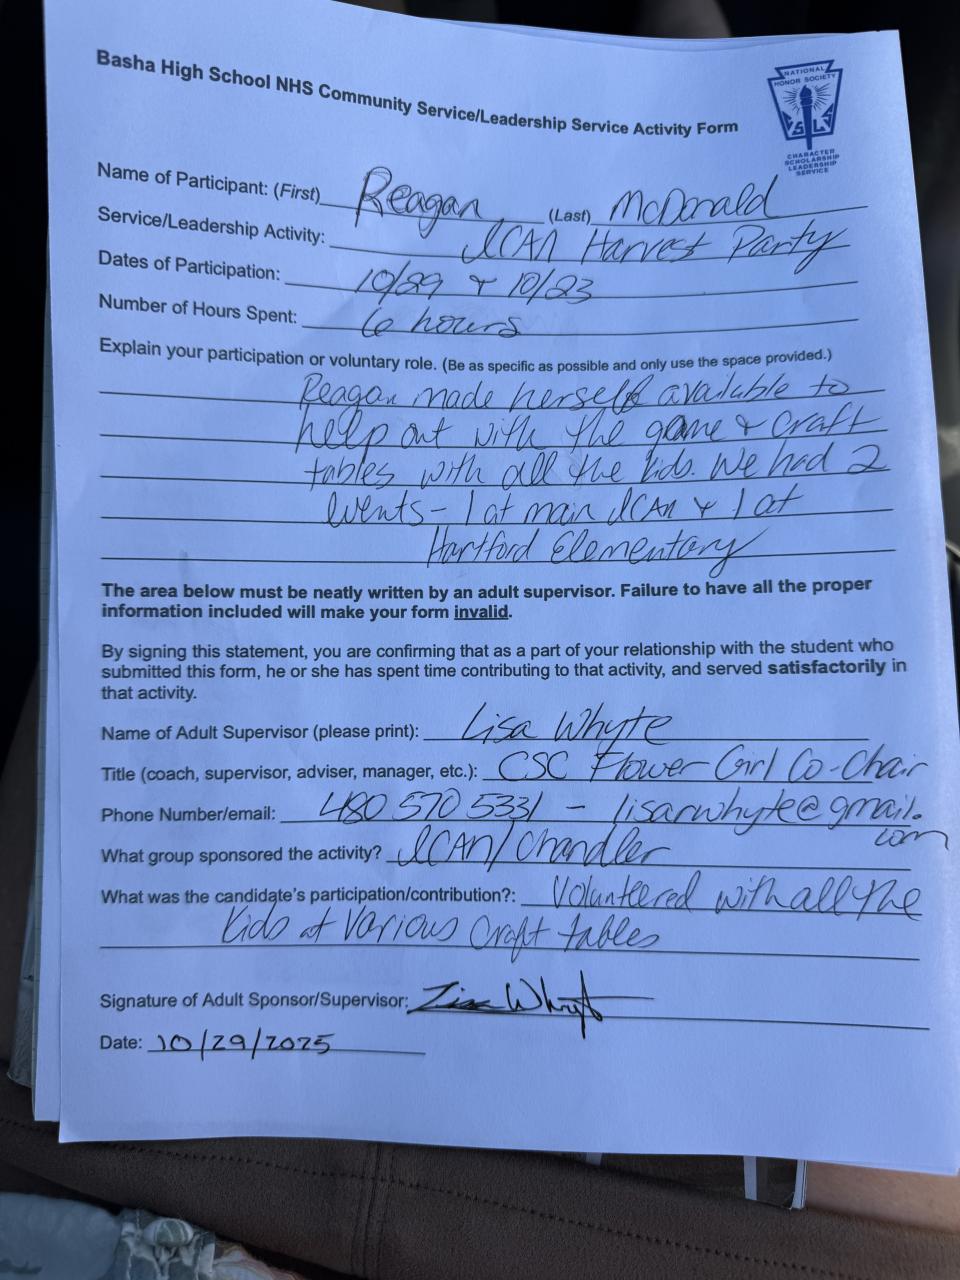 Basha High School NHS Community Service/Leadership Service Activity Form
NATIONAL
HONOR SOCIETY
CHARACTER
SCHOLARSHIP
LEADERSHIP
SERVICE
Name of Participant: (First) Reagan (Last) McDonald
Service/Leadership Activity: ICAN Harvest Party
Dates of Participation: 10/29 + 10/23
Number of Hours Spent: 6 hours
Explain your participation or voluntary role. (Be as specific as possible and only use the space provided.)
Reagan made herself available to
help out with the game + craft
tables with all the kids. We had 2
events - 1 at main ICAN + 1 at
Hartford Elementary
The area below must be neatly written by an adult supervisor. Failure to have all the proper
information included will make your form invalid.
By signing this statement, you are confirming that as a part of your relationship with the student who
submitted this form, he or she has spent time contributing to that activity, and served satisfactorily in
that activity.
Name of Adult Supervisor (please print): Lisa Whyte
Title (coach, supervisor, adviser, manager, etc.): CSC Flower Girl Co-Chair
Phone Number/email: 480 570 5331 - lisarwhyte@gmail.
com
What group sponsored the activity? ICAN/Chandler
What was the candidate's participation/contribution?: Volunteered with all the
kids at various craft tables
Signature of Adult Sponsor/Supervisor: Lisa Whyte
Date: 10/29/2025